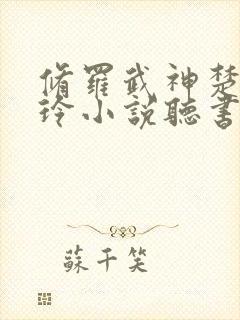 脩羅武神楚
玲小說聽書
蘇千笑